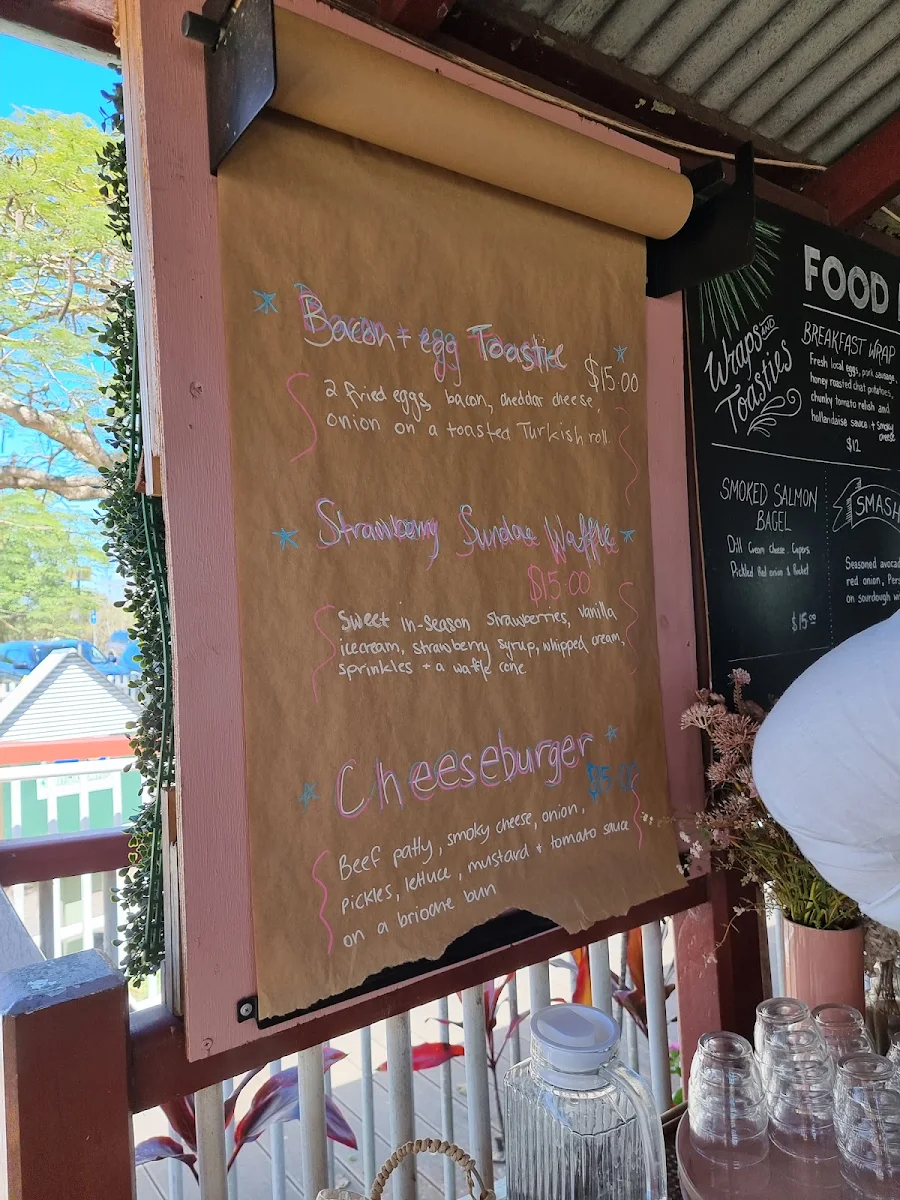 Bacon + egg Toastie
$15.00
2 fried eggs, bacon, cheddar cheese,
onion on a toasted Turkish roll.
Strawberry Sundae Waffle
$15.00
Sweet in-season strawberries, vanilla
icecream, strawberry syrup, whipped cream,
sprinkles + a waffle cone
Cheeseburger
Beef patty, smoky cheese, onion,
pickles, lettuce, mustard + tomato sauce
on a brioche bun
FOOD
Wraps AND
Toasties
BREAKFAST WRAP
Fresh local eggs, pork sausage,
honey roasted chat potatoes,
chunky tomato relish and
hollandaise sauce + smoky
cheese
$12
SMOKED SALMON
BAGEL
Dill Cream Cheese, Capers
Pickled Red onion & Rocket
$15.00
SMASH
Seasoned avoca
red onion, Pers
on sourdough w